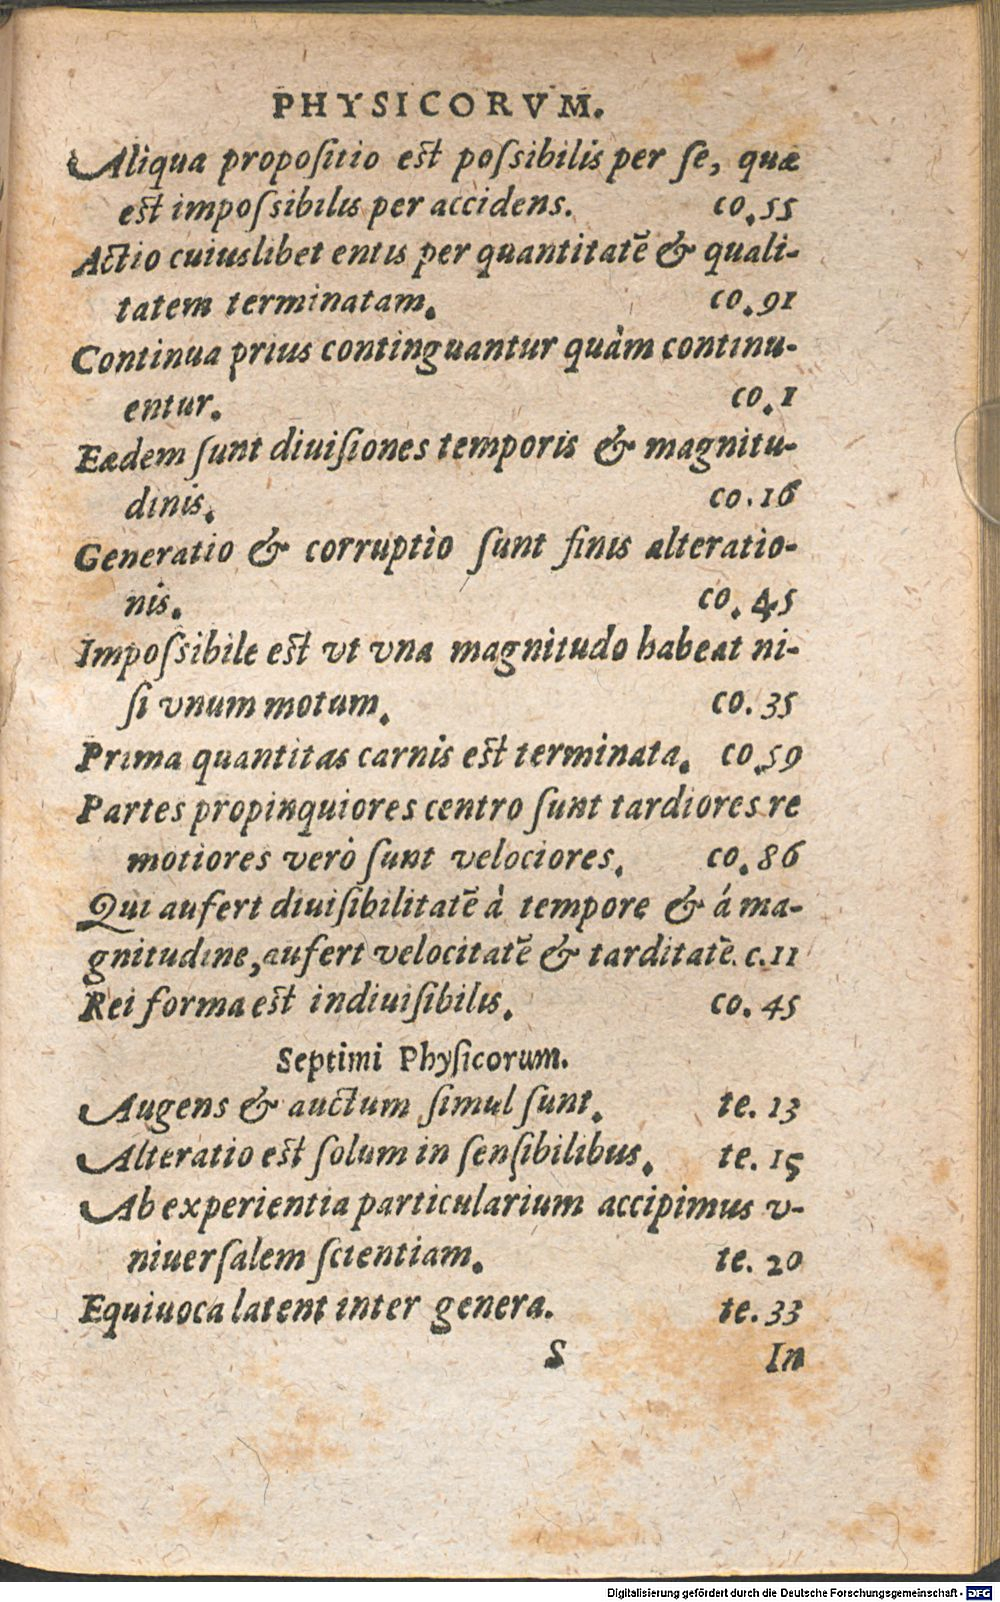 PHYSICORVM.
Aliqua propoſitio eſt poſsibilis per ſe, quæ
eſt impoſsibilis per accidens. co.55
Actio cuiuslibet entis per quantitatē & quali-
tatem terminatam. co.91
Continua prius continguantur quàm continu-
entur. co.1
Eædem ſunt diuiſiones temporis & magnitu-
dinis. co.16
Generatio & corruptio ſunt finis alteratio-
nis. co.45
Impoſsibile eſt vt vna magnitudo habeat ni-
ſi vnum motum. co.35
Prima quantitas carnis eſt terminata. co.59
Partes propinquiores centro ſunt tardiores re
motiores verò ſunt velociores. co.86
Qui aufert diuiſibilitatē à tempore & á ma-
gnitudine, aufert velocitatē & tarditatē. c.11
Rei forma eſt indiuiſibilis. co.45
Septimi Phyſicorum.
Augens & auctum ſimul ſunt. te.13
Alteratio eſt ſolum in ſenſibilibus. te.15
Ab experientia particularium accipimus v-
niuerſalem ſcientiam. te.20
Equiuoca latent inter genera. te.33
S In
Digitalisierung gefördert durch die Deutsche Forschungsgemeinschaft - DFG